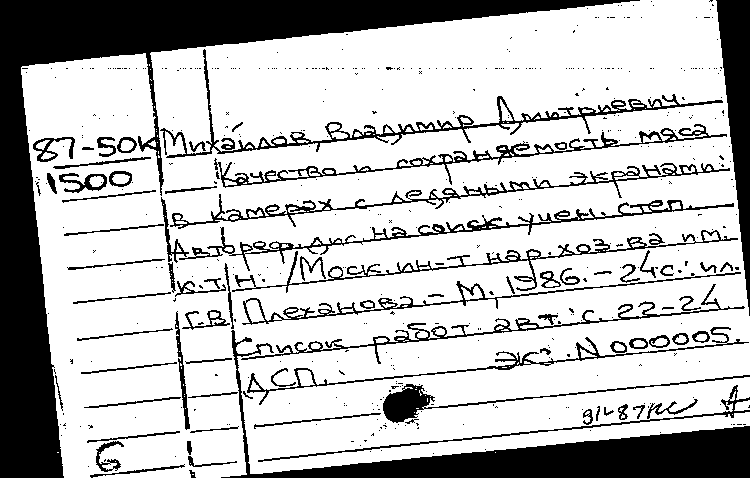 87-50К Михайлов, Владимир Дмитриевич.
1500 Качество и сохраняемость мяса
в камерах с ледяными экранами:
Автореф. дис. на соиск. учен. степ.
к.т.н. /Моск. ин-т нар. хоз-ва им.
Г.В. Плеханова. - М., 1986. - 24с.: ил.
Список работ авт.: с. 22-24
ДСП. Экз. N 000005.
6